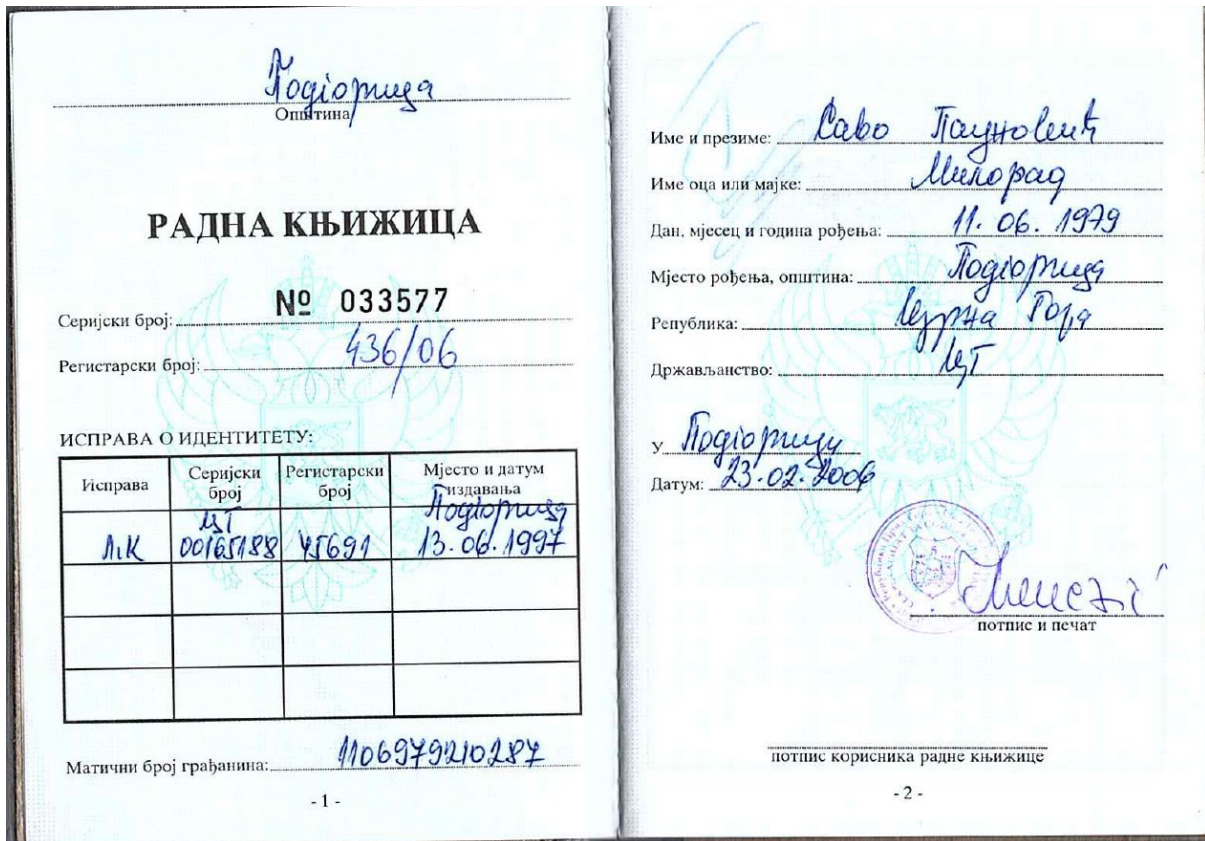 Подгорица
Општина
РАДНА КЊИЖИЦА
Серијски број: № 033577
Регистарски број: 436/06
ИСПРАВА О ИДЕНТИТЕТУ:
Исправа Серијски број Регистарски број Мјесто и датум издавања
ЛК ЦГ 00165188 45691 Подгорица 13.06.1997
Матични број грађанина: 1106979210287
- 1 -
Име и презиме: Саво Пауновић
Име оца или мајке: Милорад
Дан, мјесец и година рођења: 11.06.1979
Мјесто рођења, општина: Подгорица
Република: Црна Гора
Држављанство: ЦГ
У Подгорици
Датум: 23.02.2006
потпис и печат
потпис корисника радне књижице
- 2 -